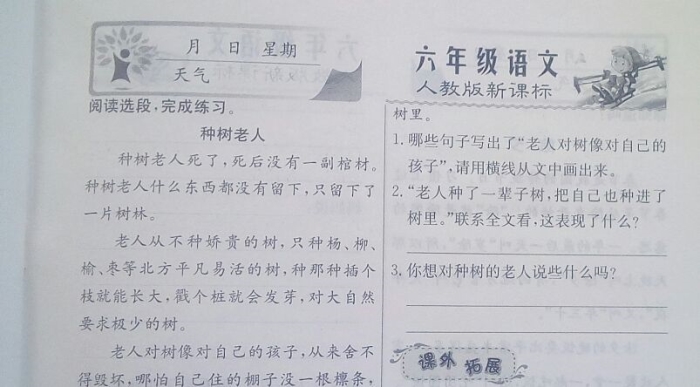 月 日 星期
天气
阅读选段,完成练习。
种树老人
种树老人死了,死后没有一副棺材。
种树老人什么东西都没有留下,只留下了
一片树林。
老人从不种娇贵的树,只种杨、柳、
榆、枣等北方平凡易活的树,种那种插个
枝就能长大,戳个桩就会发芽,对大自然
要求极少的树。
老人对树像对自己的孩子,从来舍不
得毁坏,哪怕自己住的棚子没一根檩条,
六年级语文
人教版新课标
树里。
1.哪些句子写出了“老人对树像对自己的
孩子”,请用横线从文中画出来。
2.“老人种了一辈子树,把自己也种进了
树里。”联系全文看,这表现了什么?
3.你想对种树的老人说些什么吗?
课外 拓展